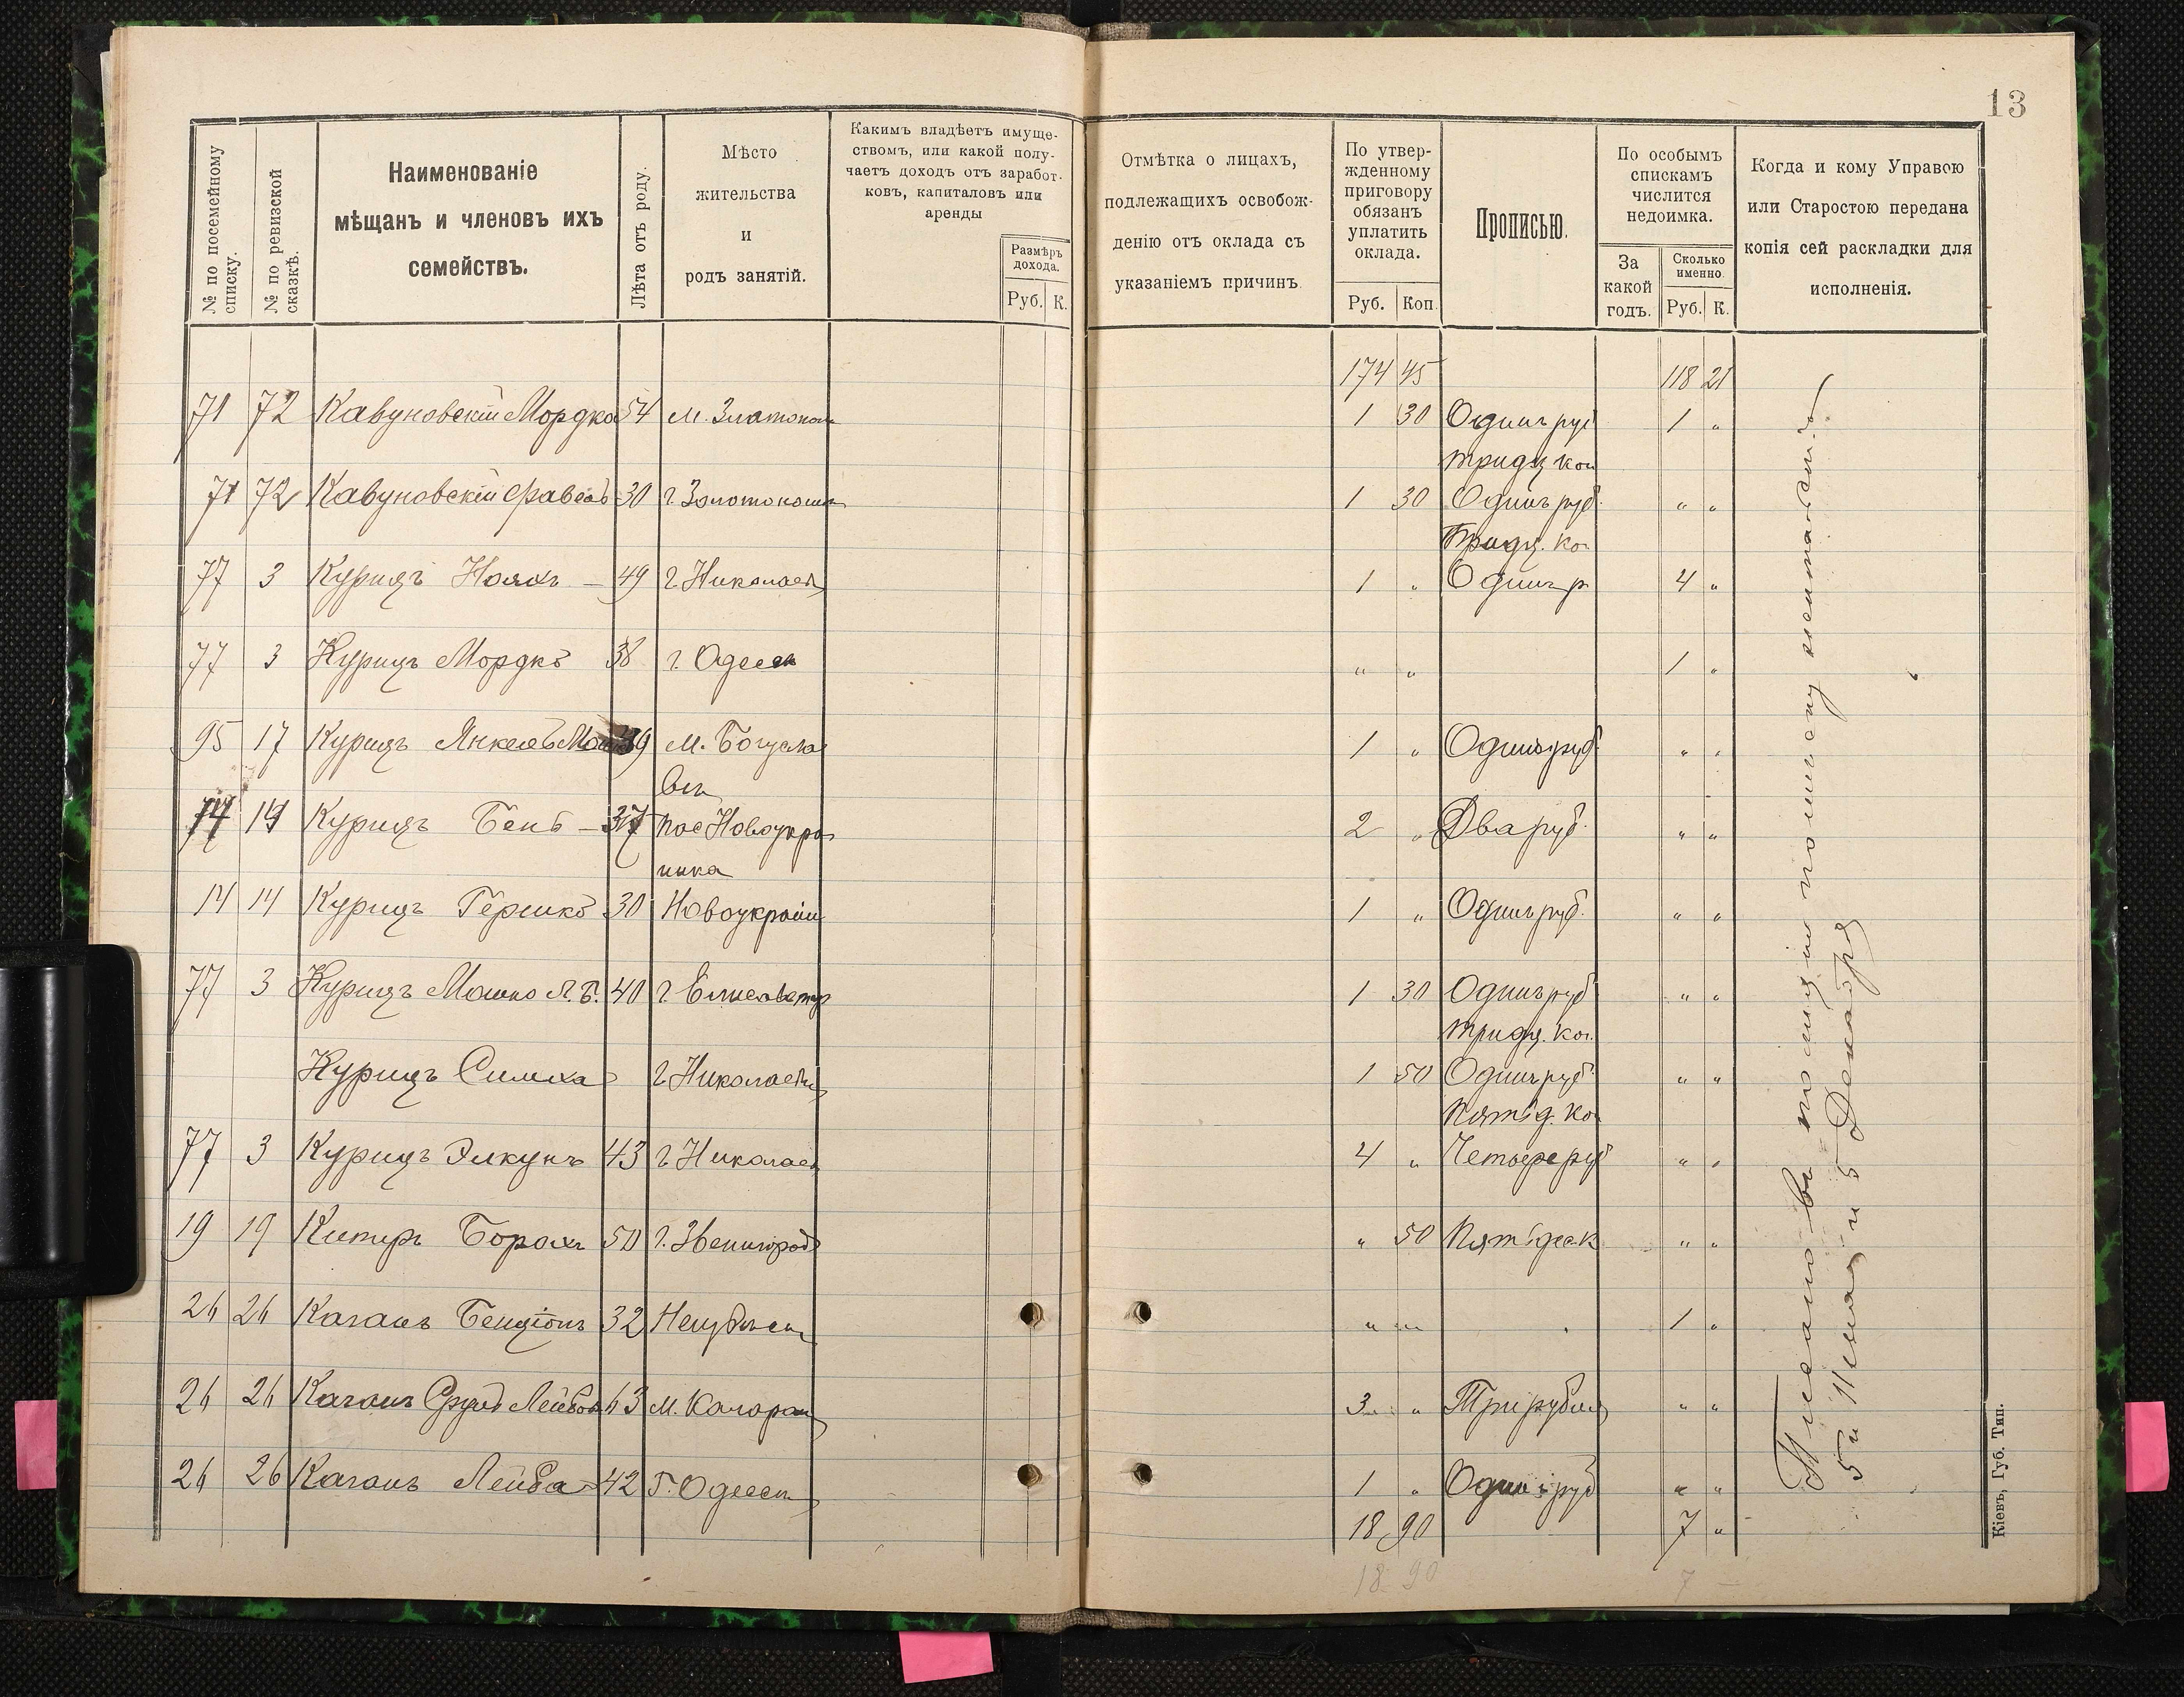 13
№ по посемейному списку.
№ по ревизской сказкѣ.
Наименованіе
мѣщанъ и членовъ ихъ
семействъ.
Лѣта отъ роду.
Мѣсто
жительства
и
родъ занятій.
Какимъ владѣетъ имуще-
ствомъ, или какой полу-
чаетъ доходъ отъ заработ-
ковъ, капиталовъ или
аренды
Размѣръ
дохода.
Руб. К.
Отмѣтка о лицахъ,
подлежащихъ освобож-
денію отъ оклада съ
указаніемъ причинъ
По утвер-
жденному
приговору
обязанъ
уплатить
оклада.
Руб. Коп.
Прописью.
По особымъ
спискамъ
числится
недоимка.
За
какой
годъ.
Сколько
именно
Руб. К.
Когда и кому Управою
или Старостою передана
копія сей раскладки для
исполненія.
174 45 118 21
71 72 Кавуновскій Мордко 54 м. Златопол 1 30 Одинъ руб 1 "
тридц коп
71 72 Кавуновскій 30 г. Золотоноша 1 30 Одинъ руб. " "
Тридц. ко
77 3 Курицъ Ноахъ — 49 г. Николаев 1 " Одинъ р 4 "
77 3 Курицъ Мордко 38 г. Одесса " " 1 "
95 17 Курицъ Янкель 39 м. Богусла 1 " Одинъ руб " "
въ
14 Курицъ Бень — 37 пос Новоукра 2 " Два руб. " "
инка
14 14 Курицъ Гершко 30 Новоукраин 1 " Одинъ руб. " "
77 3 Курицъ Мошко Л. Б. 40 г. Елисаветгр 1 30 Одинъ руб " "
тридц. коп.
Курицъ Симха г. Николаевъ 1 50 Одинъ руб. " "
Пятьд. ко
77 3 Курицъ Элкунъ 43 г. Николаев 4 " Четыре руб " "
19 19 Борохъ 50 г. Звенигород " 50 Пятьдес к " "
26 26 Каганъ Бенціонъ 32 " " 1 "
26 26 Каганъ Сруль Лейбов 63 м. 3 " Три рубля " "
26 26 Каганъ Лейба — 42 Г. Одесса 1 " Одинъ руб " "
18 90 7 "
18 90 7 —
Кіевъ, Губ. Тип.